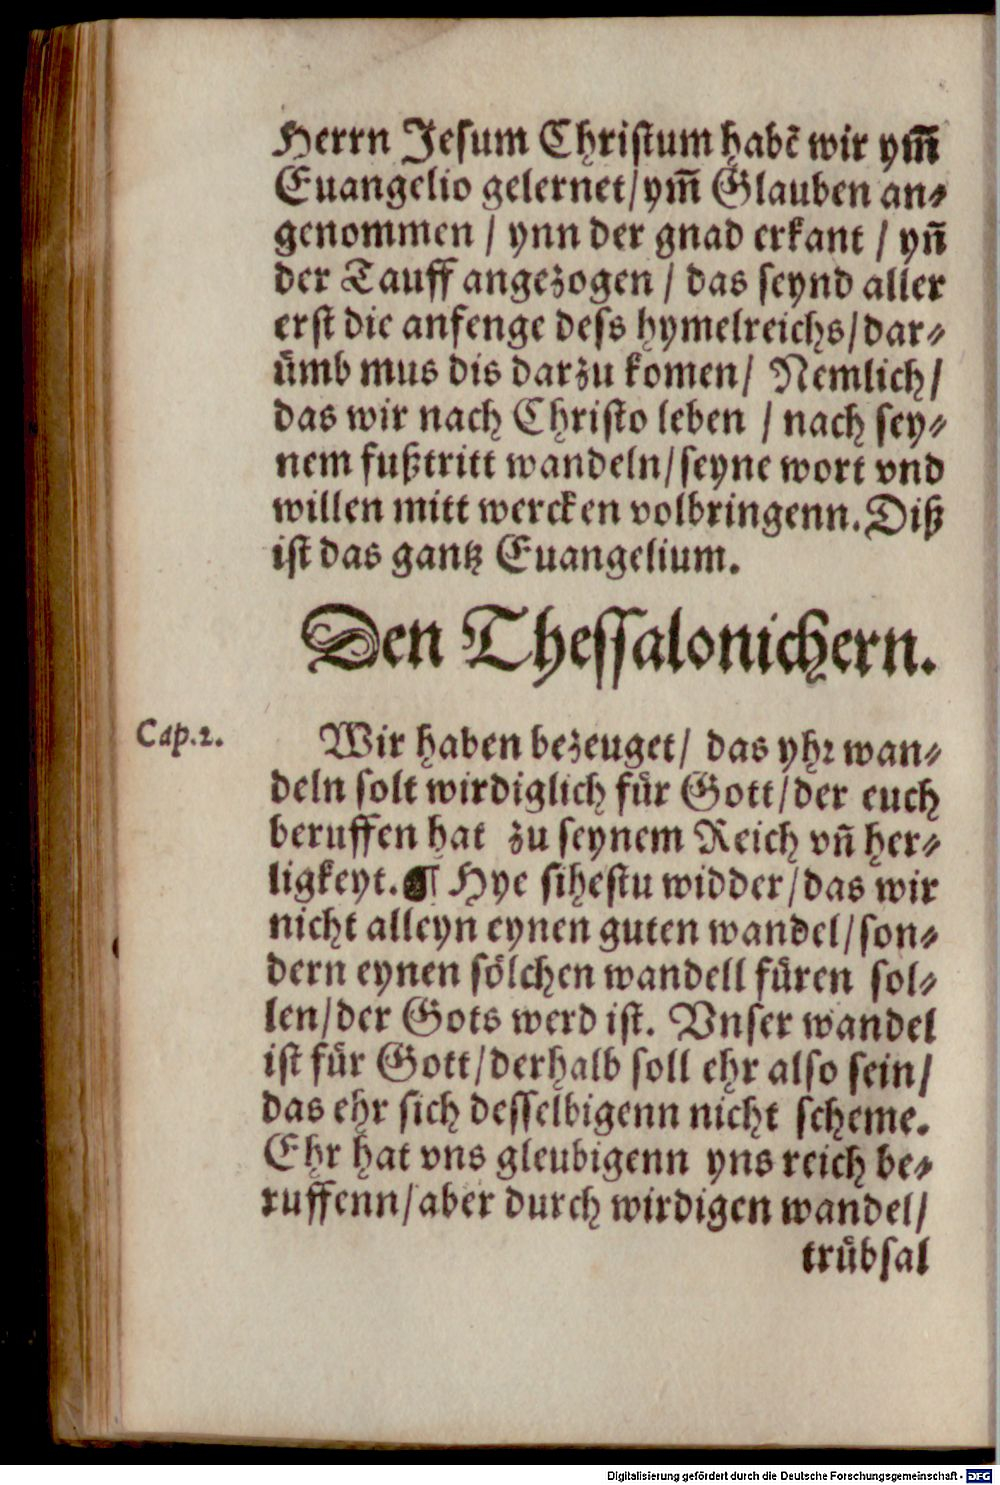 Herrn Jesum Christum habē wir ym̄
Euangelio gelernet/ym̄ Glauben an⸗
genommen / ynn der gnad erkant / yn̄
der Tauff angezogen / das seynd aller
erst die anfenge dess hymelreichs/dar⸗
uͤmb mus dis darzu komen/ Nemlich/
das wir nach Christo leben / nach sey⸗
nem fußtritt wandeln/seyne wort vnd
willen mitt wercken volbringenn. Diß
ist das gantz Euangelium.
Den Thessalonichern.
Cap.2.
Wir haben bezeuget/ das yhr wan⸗
deln solt wirdiglich fuͤr Gott/der euch
beruffen hat zu seynem Reich vn̄ her⸗
ligkeyt.¶ Hye sihestu widder/das wir
nicht alleyn eynen guten wandel/son⸗
dern eynen soͤlchen wandell fuͤren sol⸗
len/der Gots werd ist. Vnser wandel
ist fuͤr Gott/derhalb soll ehr also sein/
das ehr sich desselbigenn nicht scheme.
Ehr hat vns gleubigenn yns reich be⸗
ruffenn/aber durch wirdigen wandel/
truͤbsal
Digitalisierung gefördert durch die Deutsche Forschungsgemeinschaft - DFG